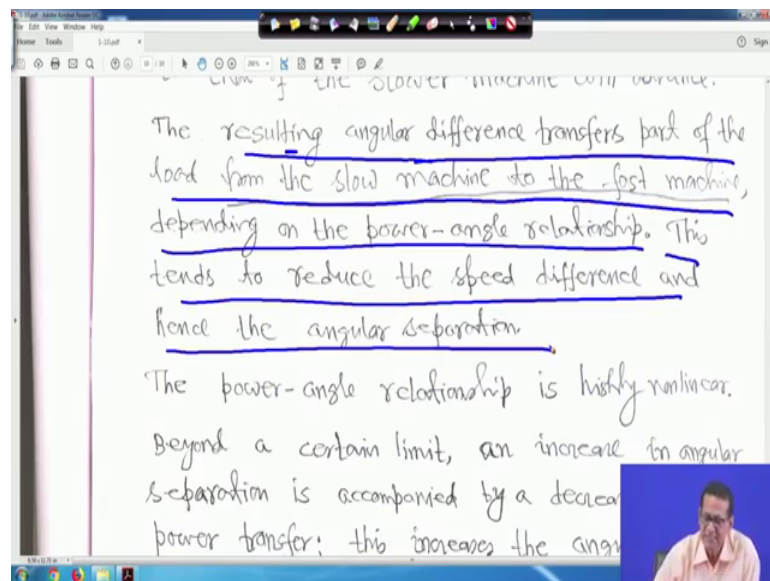 1-10.pdf - Adobe Acrobat Reader DC
File Edit View Window Help
Home Tools 1-10.pdf × Sign
of the slower machine will advance.
The resulting angular difference transfers part of the
load from the slow machine to the fast machine,
depending on the power-angle relationship. This
tends to reduce the speed difference and
hence the angular separation.
The power-angle relationship is highly nonlinear.
Beyond a certain limit, an increase in angular
separation is accompanied by a decrea
power transfer; this increases the angu